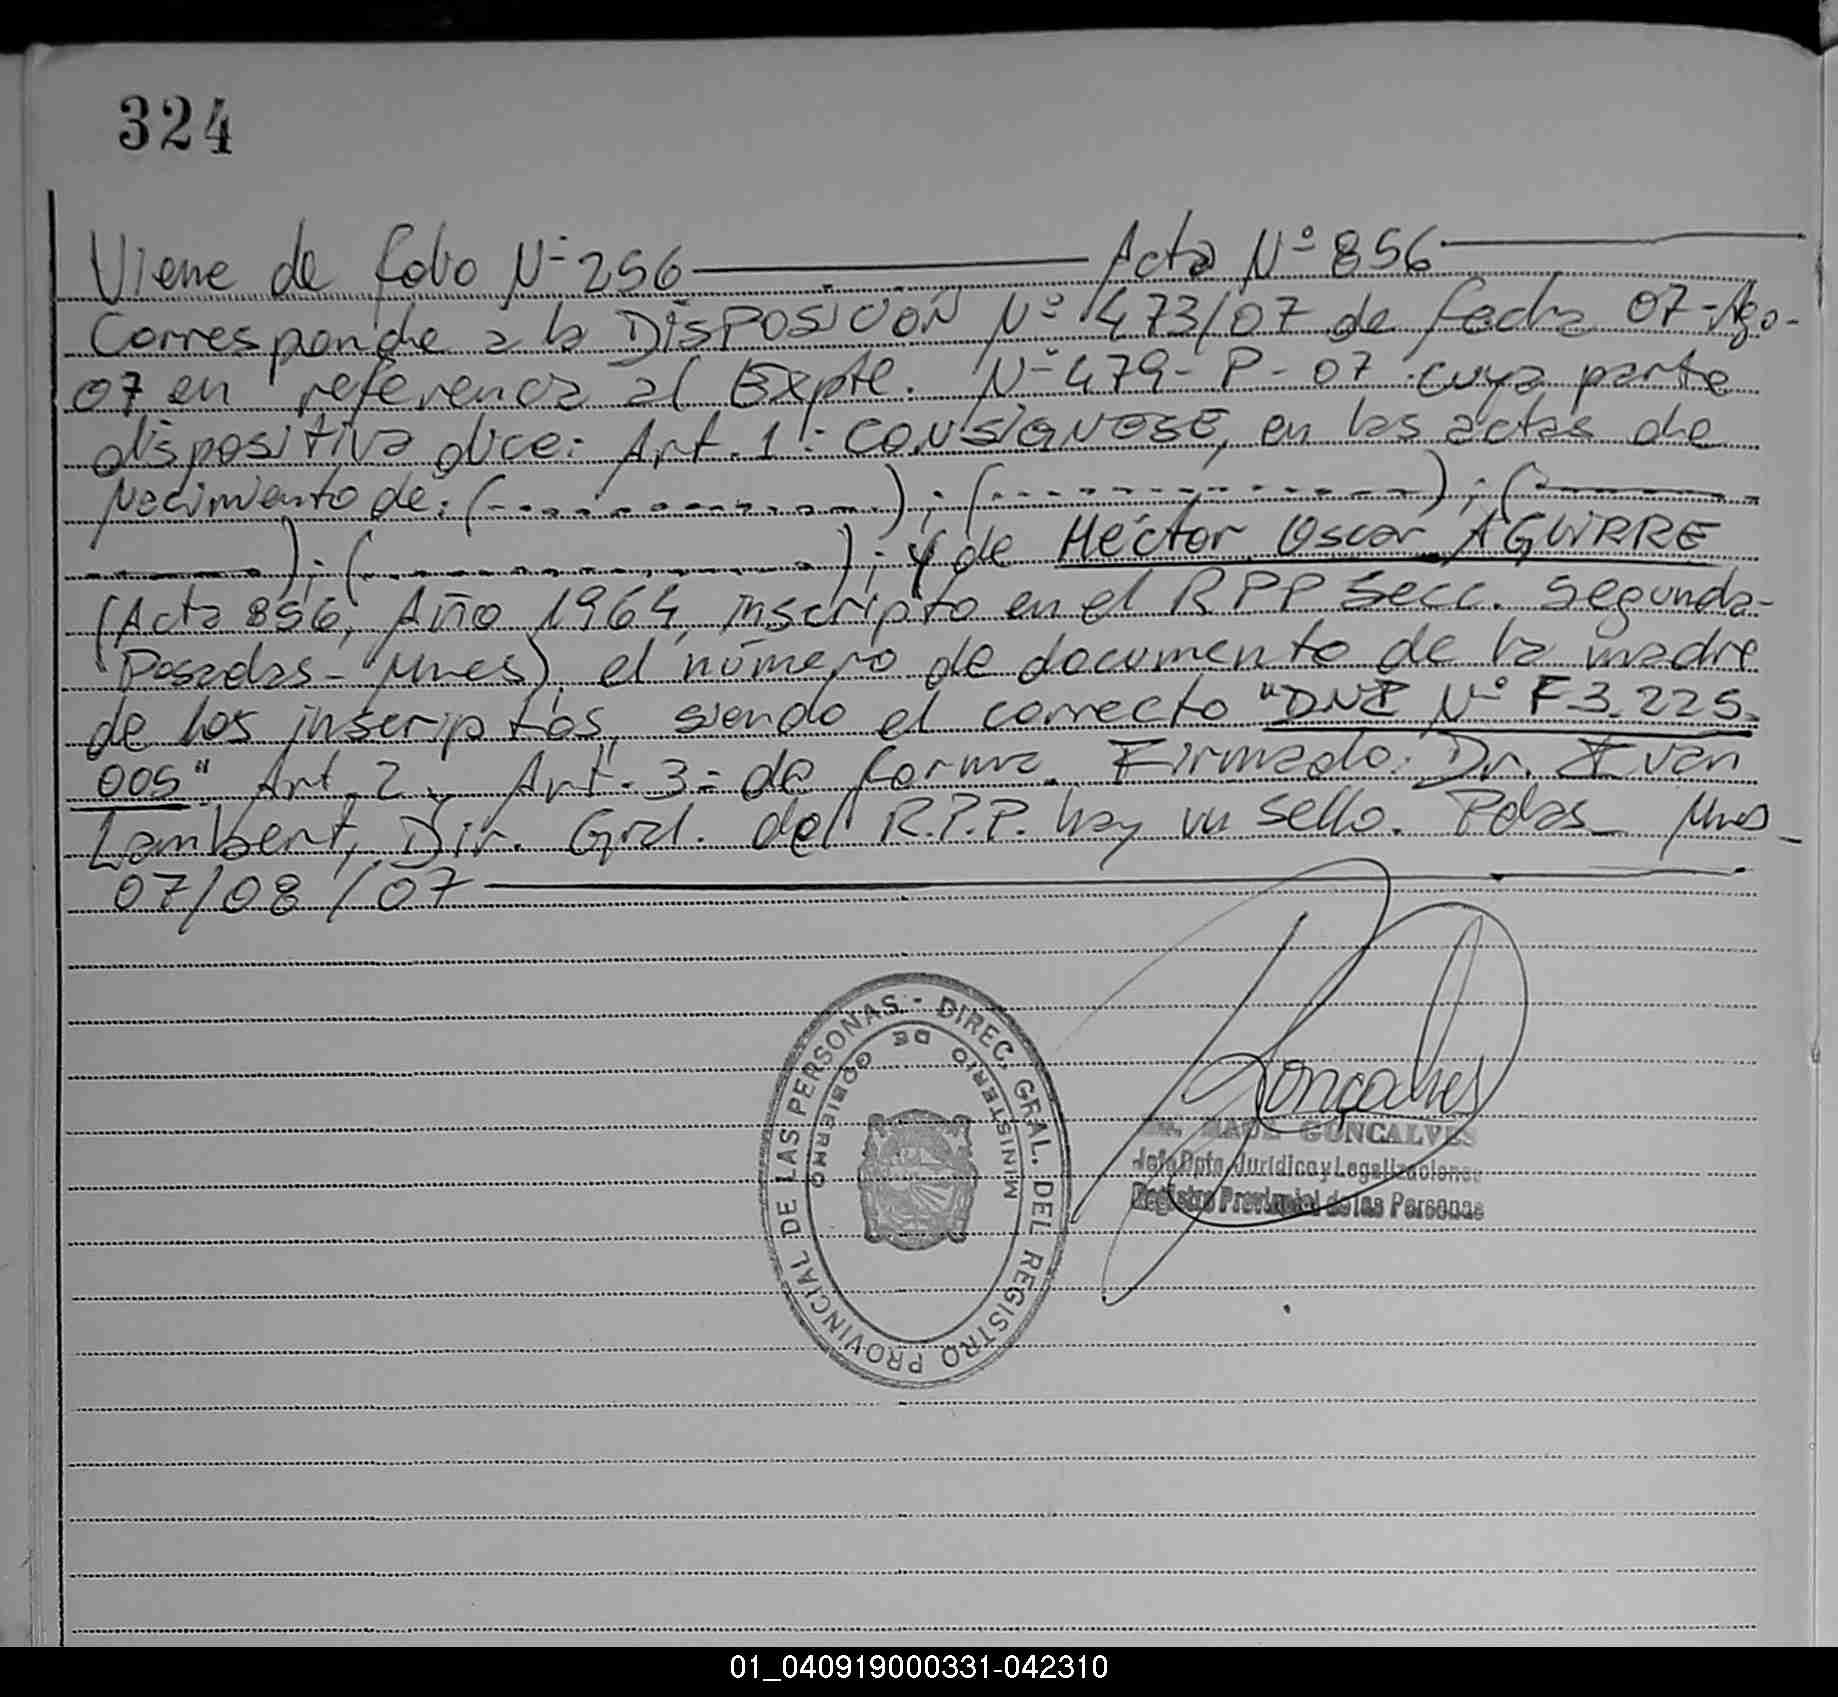 324
Viene de folio Nº 256 ——— Acta Nº 856 ———
Corresponde a la DISPOSICIÓN Nº 473/07 de fecha 07-Ago-
07 en referencia al Expte. Nº 479-P-07 cuya parte
dispositiva dice: Art. 1º: CONSIGNESE, en las actas de
Nacimiento de: (- - - - - - - - - - -); (- - - - - - - - - - - - -); (- - - - - - -
- - - - - -); (- - - - - - - - - - - - - -); y de Héctor Oscar AGUIRRE
(Acta 856, Año 1964, inscripto en el RPP Secc. Segunda-
Posadas - Mnes), el número de documento de la madre
de los inscriptos, siendo el correcto "DNI Nº F3.225.
005" Art. 2 y Art. 3= de forma. Firmado: Dr. Ivan
Lambert, Dir. Gral. del R.P.P. hay un sello. Pdas - Mnes -
07/08/07 ———
DIREC. GRAL. DEL REGISTRO PROVINCIAL DE LAS PERSONAS -
MINISTERIO DE GOBIERNO
Goncalves
GONCALVES
Jefe Dpto. Jurídico y Legalizaciones
Registro Provincial de las Personas
01_040919000331-042310